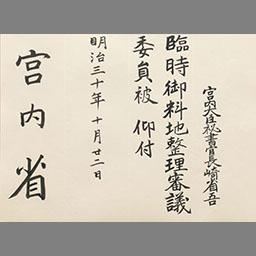 宮内大臣秘書官長崎省吾
臨時御料地整理審議
委員被 仰付
明治三十年十月廿二日
宮内省